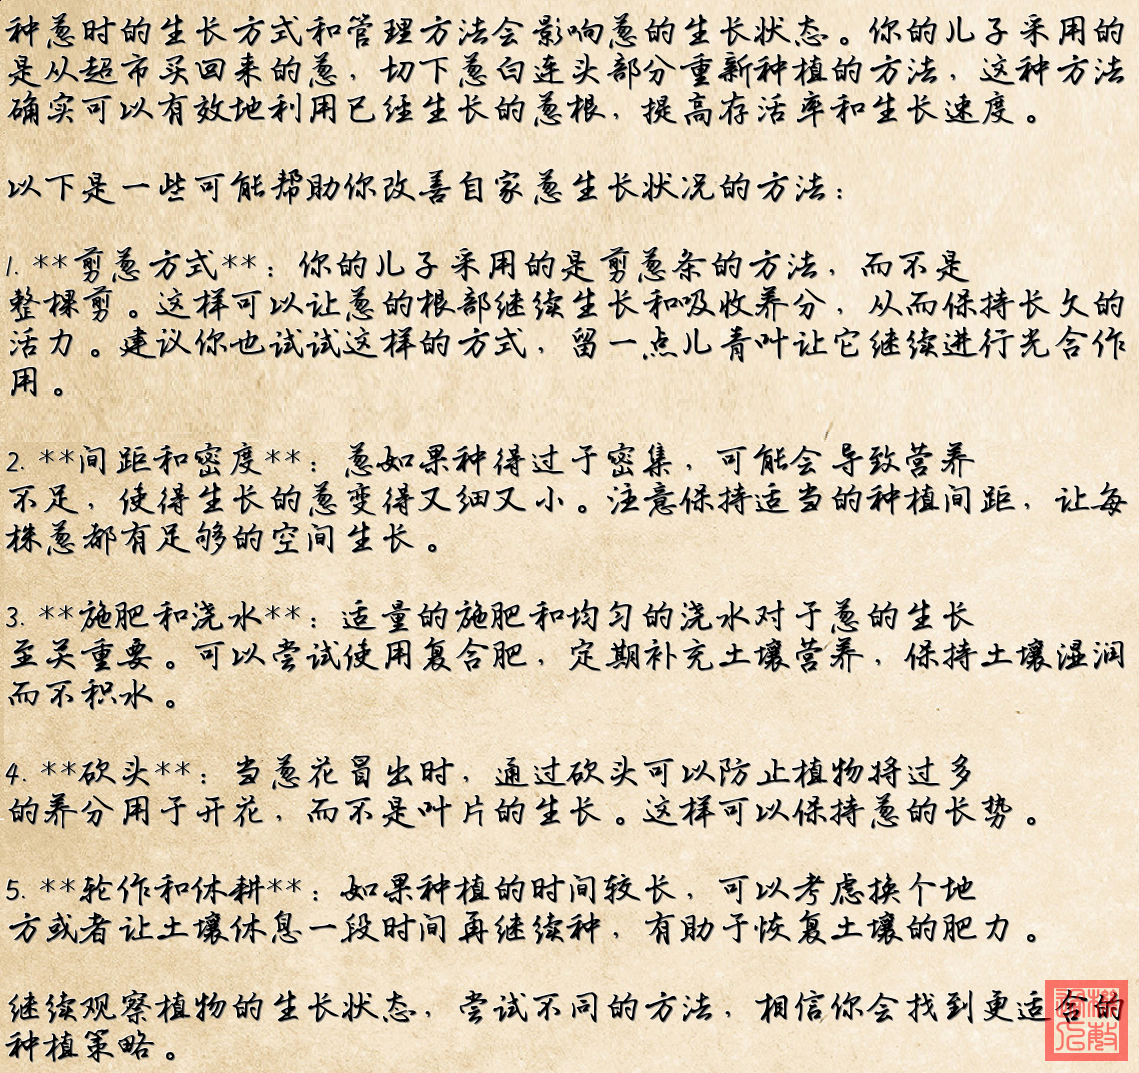 种葱时的生长方式和管理方法会影响葱的生长状态。你的儿子采用的
是从超市买回来的葱，切下葱白连头部分重新种植的方法，这种方法
确实可以有效地利用已经生长的葱根，提高存活率和生长速度。
以下是一些可能帮助你改善自家葱生长状况的方法：
1. **剪葱方式**：你的儿子采用的是剪葱条的方法，而不是
整棵剪。这样可以让葱的根部继续生长和吸收养分，从而保持长久的
活力。建议你也试试这样的方式，留一点儿青叶让它继续进行光合作
用。
2. **间距和密度**：葱如果种得过于密集，可能会导致营养
不足，使得生长的葱变得又细又小。注意保持适当的种植间距，让每
株葱都有足够的空间生长。
3. **施肥和浇水**：适量的施肥和均匀的浇水对于葱的生长
至关重要。可以尝试使用复合肥，定期补充土壤营养，保持土壤湿润
而不积水。
4. **砍头**：当葱花冒出时，通过砍头可以防止植物将过多
的养分用于开花，而不是叶片的生长。这样可以保持葱的长势。
5. **轮作和休耕**：如果种植的时间较长，可以考虑换个地
方或者让土壤休息一段时间再继续种，有助于恢复土壤的肥力。
继续观察植物的生长状态，尝试不同的方法，相信你会找到更适合的
种植策略。